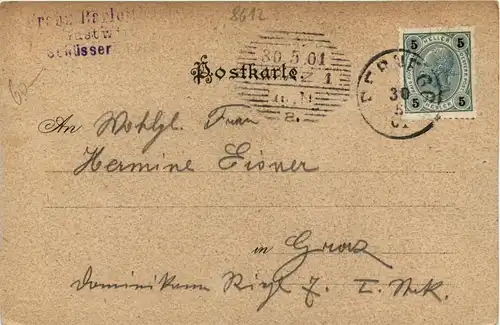 Franz
Gastwirt
8612
Postkarte
30.5.01
1
2.
PERNEGG
30
5
01
5 5
HELLER
5 5
60
An Wohlgb. Frau
Hermine Eisner
in Graz
Dominikaner Riegl 7. I. Stk.